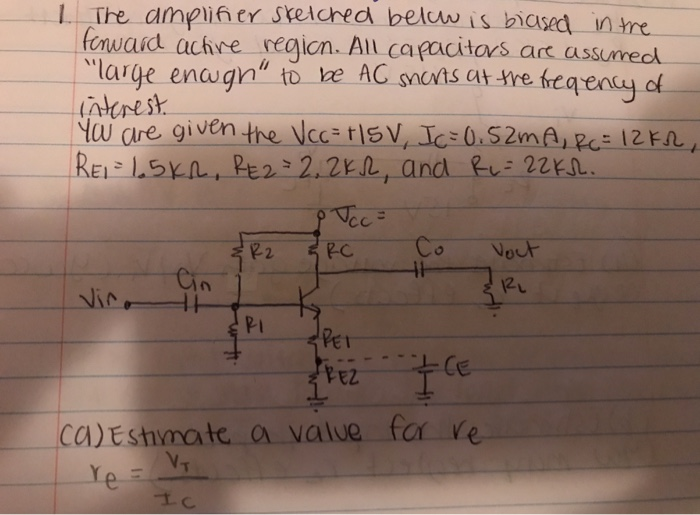 1. The amplifier sketched below is biased in the
forward active region. All capacitors are assumed
"large enough" to be AC shorts at the freqency of
interest.
You are given the Vcc=+15V, Ic=0.52mA, Rc=12KΩ,
RE1=1.5KΩ, RE2=2.2KΩ, and RL=22KΩ.
Vcc=
R2
RC
Co
Vout
Cin
RL
Vin
R1
RE1
CE
RE2
(a) Estimate a value for re
re = VT
Ic